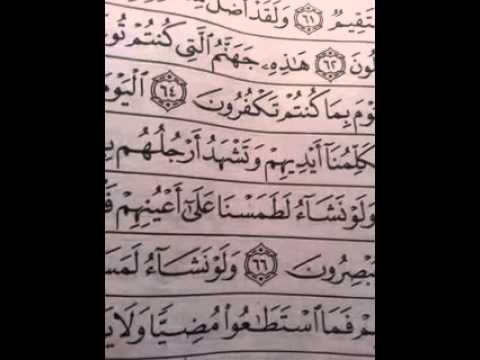 ـتَقِيمٌ ٦١ وَلَقَدْ أَضَلَّ
ـلُونَ ٦٢ هَٰذِهِۦ جَهَنَّمُ ٱلَّتِى كُنتُمْ تُو
ـوْمَ بِمَا كُنتُمْ تَكْفُرُونَ ٦٤ ٱلْيَوْمَ
ـكَلِّمُنَآ أَيْدِيهِمْ وَتَشْهَدُ أَرْجُلُهُم بِـ
وَلَوْ نَشَآءُ لَطَمَسْنَا عَلَىٰٓ أَعْيُنِهِمْ فَـ
ـبْصِرُونَ ٦٦ وَلَوْ نَشَآءُ لَمَسَـ
ـمْ فَمَا ٱسْتَطَٰعُوا۟ مُضِيًّا وَلَا يَـ